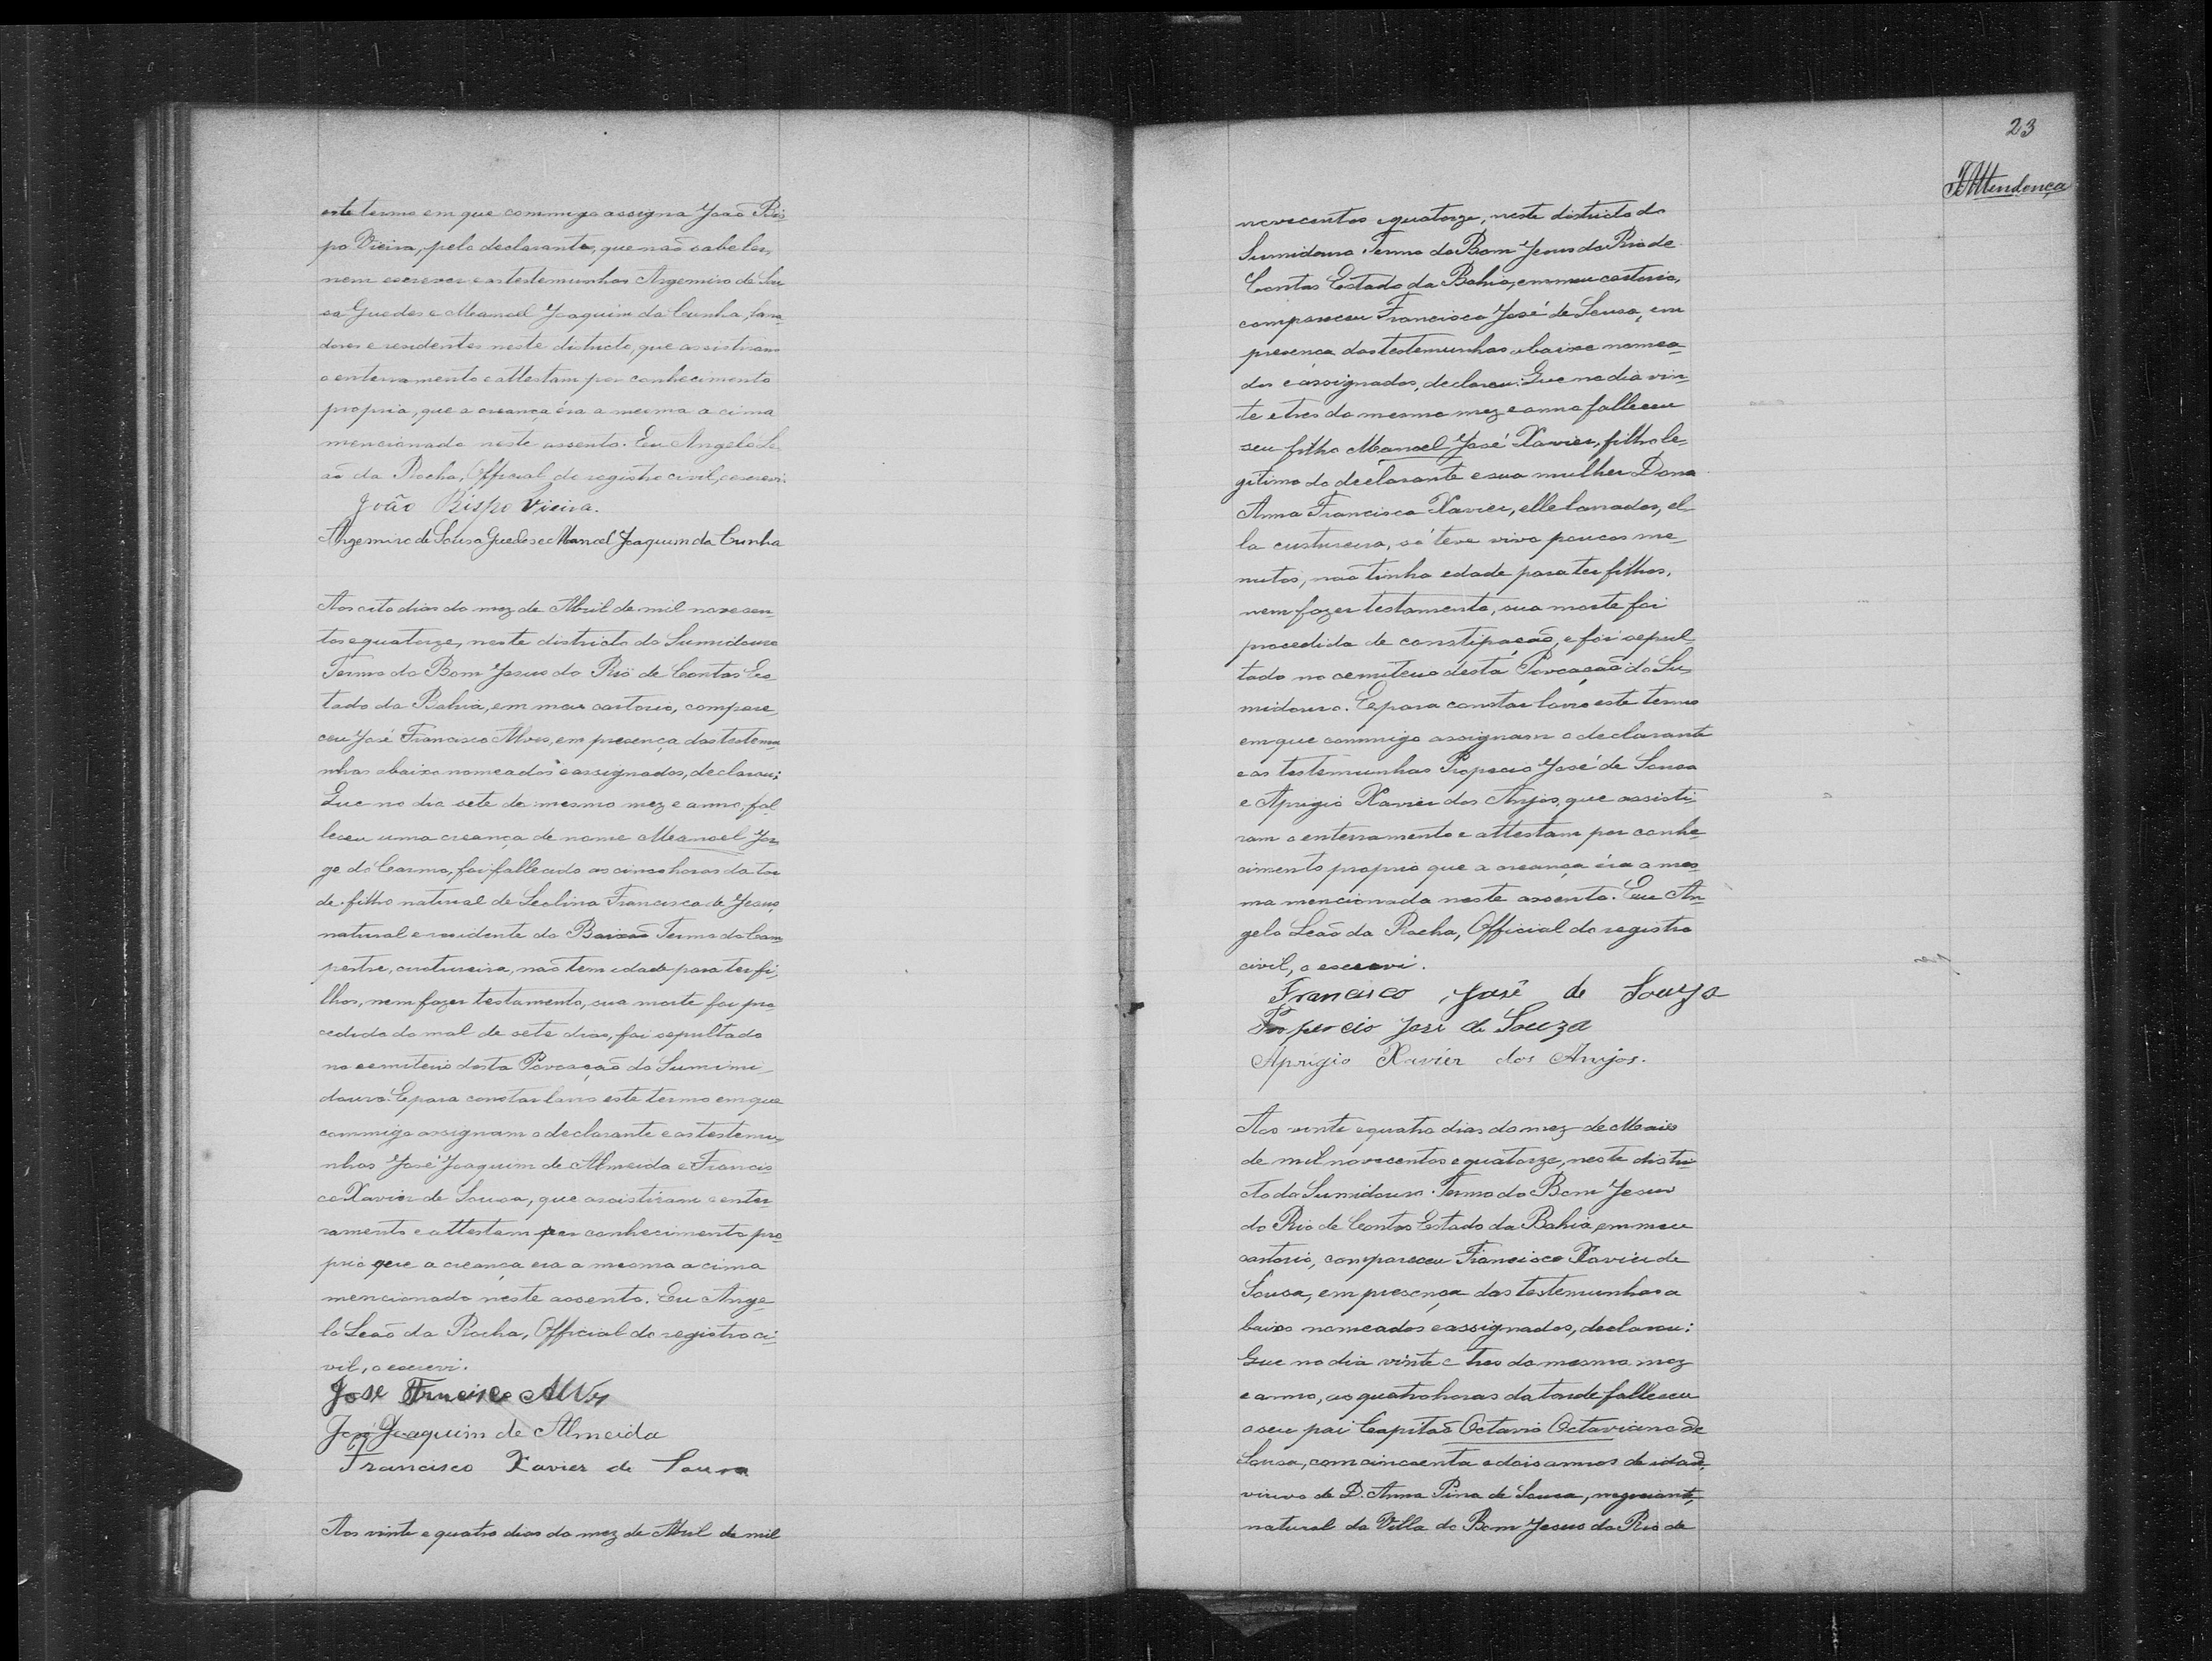 este termo em que commigo assigna João Bis
po Vieira, pelo declarante, que não sabe ler,
nem escrever e as testemunhas Argemiro de Sou
sa Guedes e Manoel Joaquim da Cunha, lavra
dores e residentes neste districto, que assistiram
o enterramento e attestam por conhecimento
proprio, que a creança éra a mesma a cima
mencionado neste assento. Eu Angelo Le
ão da Rocha, Official do registro civil, o escrevi.
João Bispo Vieira.
Argemiro de Sousa Guedes e Manoel Joaquim da Cunha
Aos oito dias do mez de Abril de mil novesen-
tos e quatorze, neste districto do Sumidouro
Termo do Bom Jesus do Rio de Contas Es
tado da Bahia, em meu cartorio, compare
ceu José Francisco Alves, em presença das testemu
nhas abaixo nomeados e assignados, declarou:
Que no dia sete do mesmo mez e anno, fal-
leceu uma creança de nome Manoel Jor
ge do Carmo, foi fallecido as cinco horas da tar
de filho natural de Leolina Francisca de Jesus,
natural e residente do Baixão Termo do Cam
pestre, custureira, não tem idade para ter fi
lhos, nem fazer testamento, sua morte foi pro
cedida do mal de sete dias, foi sepultado
no cemiterio desta Povoação do Sumimi-
douro. E para constar lavro este termo em que
commigo assignam o declarante e as testemu
nhas José Joaquim de Almeida e Francis
co Xavier de Sousa, que assistiram o enter
ramento e attestam por conhecimento pro
prio que a creança era a mesma a cima
mencionado neste assento. Eu Ange
lo Leão da Rocha, Official do registro ci
vil, o escrevi.
José Francisco Alves
José Joaquim de Almeida
Francisco Xavier de Sousa
Aos vinte e quatro dias do mez de Abril de mil
23
novecentos e quatorze, neste districto do
Sumidouro Termo do Bom Jesus do Rio de
Contas Estado da Bahia, em meu cartorio,
compareceu Francisco José de Sousa, em
presenca das testemunhas abaixo nomea-
dos e assignados, declarou: Que no dia vin-
te e tres do mesmo mez e anno falleceu
seu filho Manoel José Xavier, filho le-
gitimo do declarante e sua mulher Dona
Anna Francisca Xavier, elle lavrador, el
la custureira, só teve vivo poucos me-
nutos, não tinha edade para ter filhos,
nem fazer testamento, sua morte foi
procedida de constipação, e foi sepul
tado no cemiterio desta Povoação do Su-
midouro. E para constar lavro este termo
em que commigo assignam o declarante
e as testemunhas Propercio José de Sousa
e Aprigio Xavier dos Anjos, que assisti
ram o enterramento e attestam por conhe-
cimento proprio que a creança éra a mes
ma mencionada neste assento. Eu An-
gelo Leão da Rocha, Official do registro
civil, o escrevi.
Francisco José de Souza
Propercio José de Souza
Aprigio Xavier dos Anjos.
Aos vinte e quatro dias do mez de Maio
de mil novecentos e quatorze, neste distri-
cto do Sumidouro Termo do Bom Jesus
do Rio de Contas Estado da Bahia, em meu
cartorio, compareceu Francisco Xavier de
Sousa, em presença das testemunhas a
baixo nomeados e assignados, declarou:
Que no dia vinte e tres do mesmo mez
e anno, as quatro horas da tarde falleceu
o seu pai Capitão Octavio Octaviano de
Sousa, com cincoenta e dois annos de idade,
viuvo de D. Anna Pina de Sousa, negociante,
natural da Villa do Bom Jesus do Rio de